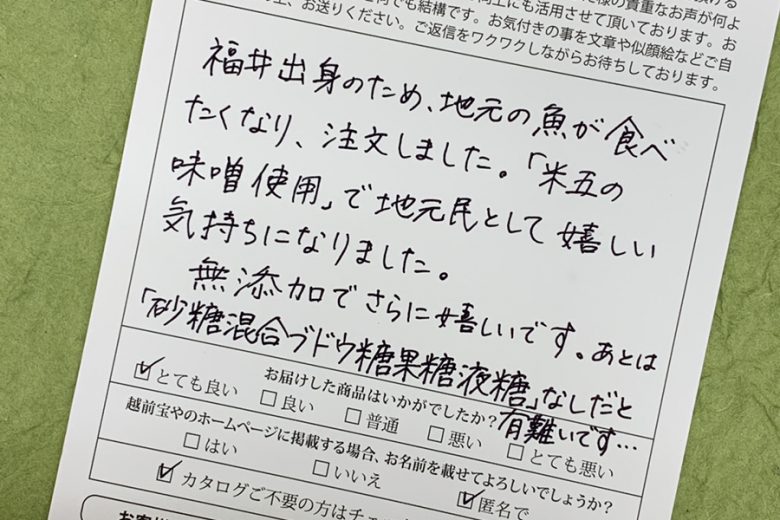 様の貴重なお声が何よ
向上にも活用させて頂いております。お
何でも結構です。お気付きの事を文章や似顔絵などご
上、お送りください。ご返信をワクワクしながらお待ちしております。
福井出身のため、地元の魚が食べ
たくなり、注文しました。「米五の
味噌使用」で地元民として嬉しい
気持ちになりました。
無添加でさらに嬉しいです。あとは
「砂糖混合ブドウ糖果糖液糖」なしだと
有難いです…
お届けした商品はいかがでしたか?
☑とても良い □良い □普通 □悪い □とても悪い
越前宝やのホームページに掲載する場合、お名前を載せてよろしいでしょうか?
□はい □いいえ ☑匿名で
☑カタログご不要の方はチェ